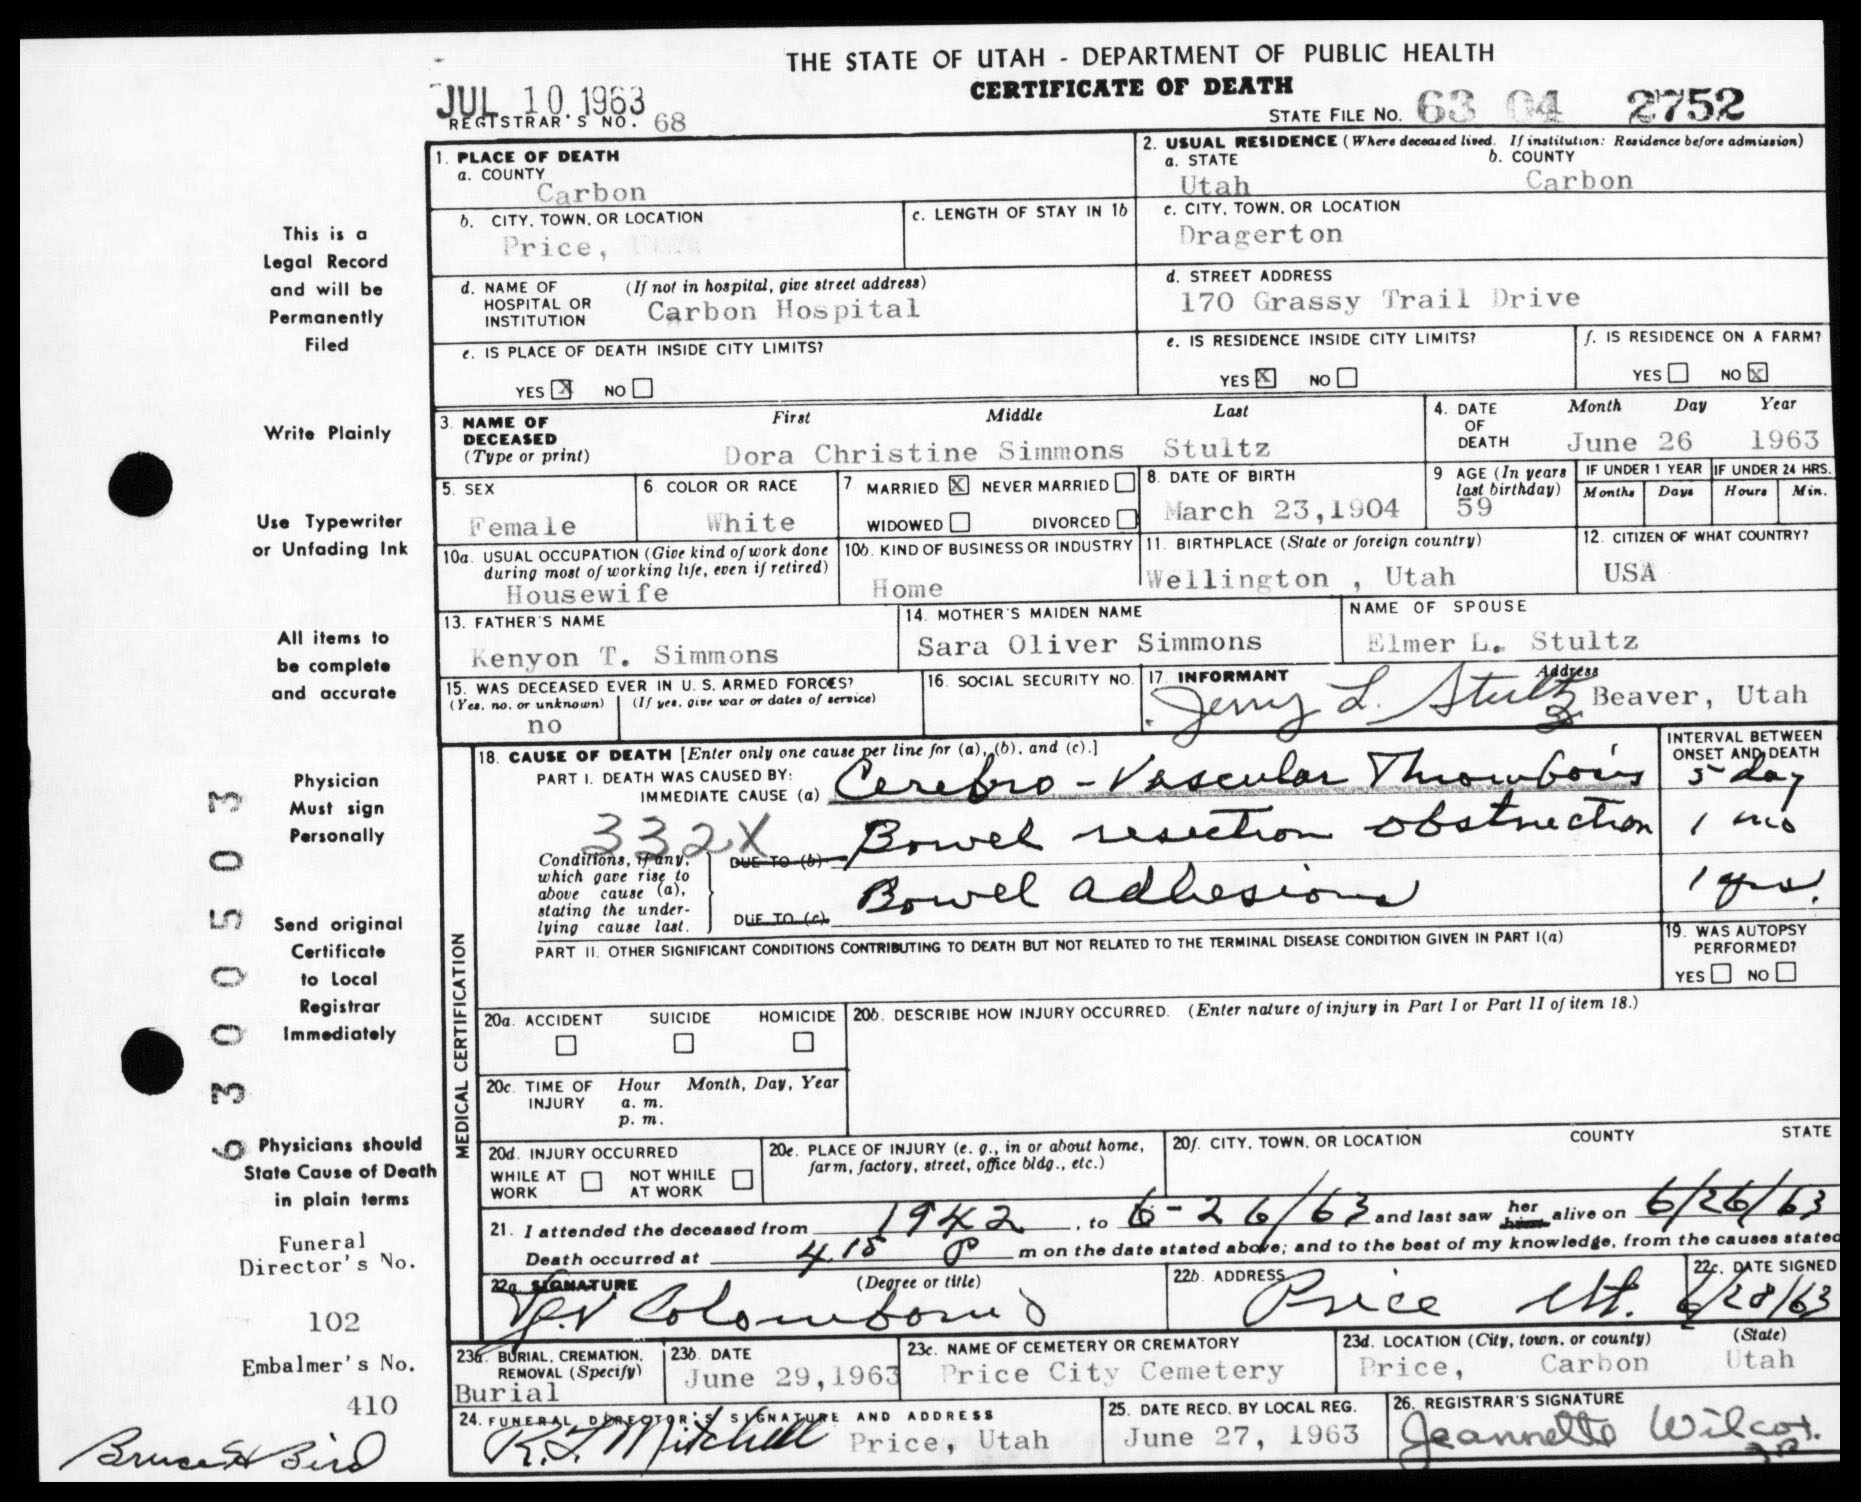 THE STATE OF UTAH - DEPARTMENT OF PUBLIC HEALTH
CERTIFICATE OF DEATH
JUL 10 1963
REGISTRAR'S NO. 68
STATE FILE NO. 63 04 2752
1. PLACE OF DEATH
a. COUNTY
Carbon
2. USUAL RESIDENCE (Where deceased lived. If institution: Residence before admission)
a. STATE b. COUNTY
Utah Carbon
b. CITY, TOWN, OR LOCATION
Price,
c. LENGTH OF STAY IN 1b
c. CITY, TOWN, OR LOCATION
Dragerton
d. NAME OF HOSPITAL OR INSTITUTION (If not in hospital, give street address)
Carbon Hospital
d. STREET ADDRESS
170 Grassy Trail Drive
e. IS PLACE OF DEATH INSIDE CITY LIMITS?
YES X NO
e. IS RESIDENCE INSIDE CITY LIMITS?
YES X NO
f. IS RESIDENCE ON A FARM?
YES NO X
3. NAME OF DECEASED (Type or print) First Middle Last
Dora Christine Simmons Stultz
4. DATE OF DEATH Month Day Year
June 26 1963
5. SEX
Female
6. COLOR OR RACE
White
7. MARRIED X NEVER MARRIED
WIDOWED DIVORCED
8. DATE OF BIRTH
March 23,1904
9 AGE (In years last birthday)
59
IF UNDER 1 YEAR IF UNDER 24 HRS.
Months Days Hours Min.
10a. USUAL OCCUPATION (Give kind of work done during most of working life, even if retired)
Housewife
10b. KIND OF BUSINESS OR INDUSTRY
Home
11. BIRTHPLACE (State or foreign country)
Wellington , Utah
12. CITIZEN OF WHAT COUNTRY?
USA
13. FATHER'S NAME
Kenyon T. Simmons
14. MOTHER'S MAIDEN NAME
Sara Oliver Simmons
NAME OF SPOUSE
Elmer L. Stultz
15. WAS DECEASED EVER IN U. S. ARMED FORCES?
(Yes, no, or unknown) (If yes, give war or dates of service)
no
16. SOCIAL SECURITY NO.
17. INFORMANT Address
Jerry L. Stultz Beaver, Utah
MEDICAL CERTIFICATION
18. CAUSE OF DEATH [Enter only one cause per line for (a), (b), and (c).]
INTERVAL BETWEEN ONSET AND DEATH
PART I. DEATH WAS CAUSED BY:
IMMEDIATE CAUSE (a) Cerebro-Vascular Thrombosis 5 day
332X
DUE TO (b) Bowel resection obstruction 1 mo
Conditions, if any, which gave rise to above cause (a), stating the underlying cause last.
DUE TO (c) Bowel adhesions 1 yrs.
PART II. OTHER SIGNIFICANT CONDITIONS CONTRIBUTING TO DEATH BUT NOT RELATED TO THE TERMINAL DISEASE CONDITION GIVEN IN PART I(a)
19. WAS AUTOPSY PERFORMED?
YES NO
20a. ACCIDENT SUICIDE HOMICIDE
20b. DESCRIBE HOW INJURY OCCURRED. (Enter nature of injury in Part I or Part II of item 18.)
20c. TIME OF INJURY Hour Month, Day, Year
a. m.
p. m.
20d. INJURY OCCURRED
WHILE AT WORK NOT WHILE AT WORK
20e. PLACE OF INJURY (e. g., in or about home, farm, factory, street, office bldg., etc.)
20f. CITY, TOWN, OR LOCATION COUNTY STATE
21. I attended the deceased from 1942, to 6-26/63 and last saw her him alive on 6/26/63
Death occurred at 4 15 P m on the date stated above; and to the best of my knowledge, from the causes stated
22a. SIGNATURE (Degree or title)
Colombo
22b. ADDRESS
Price Ut.
22c. DATE SIGNED
6/28/63
23a. BURIAL, CREMATION, REMOVAL (Specify)
Burial
23b. DATE
June 29,1963
23c. NAME OF CEMETERY OR CREMATORY
Price City Cemetery
23d. LOCATION (City, town, or county) (State)
Price, Carbon Utah
24. FUNERAL DIRECTOR'S SIGNATURE AND ADDRESS
R.L. Mitchell Price, Utah
25. DATE RECD. BY LOCAL REG.
June 27, 1963
26. REGISTRAR'S SIGNATURE
Jeannette Wilcox.
This is a
Legal Record
and will be
Permanently
Filed
Write Plainly
Use Typewriter
or Unfading Ink
All items to
be complete
and accurate
Physician
Must sign
Personally
Send original
Certificate
to Local
Registrar
Immediately
Physicians should
State Cause of Death
in plain terms
6300503
Funeral
Director's No.
102
Embalmer's No.
410
Bruce H Bird